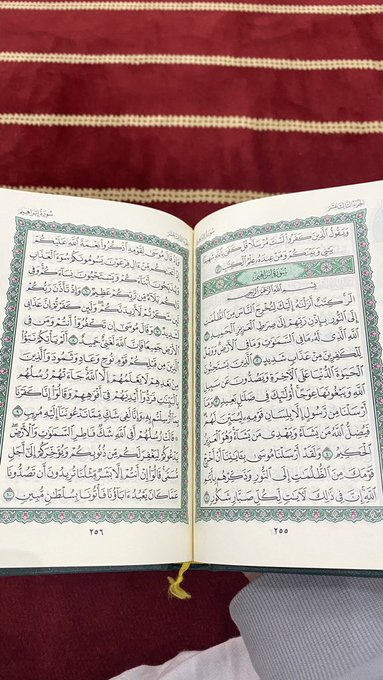 الجزء الثالث عشر
سورة إبراهيم
وَيَقُولُ الَّذِينَ كَفَرُوا لَسْتَ مُرْسَلًا قُلْ كَفَىٰ بِاللَّهِ شَهِيدًا
بَيْنِي وَبَيْنَكُمْ وَمَنْ عِندَهُ عِلْمُ الْكِتَٰبِ ٤٣
سُورَةُ إِبْرَاهِيمَ
بِسْمِ اللَّهِ الرَّحْمَٰنِ الرَّحِيمِ
الٓر كِتَٰبٌ أَنزَلْنَٰهُ إِلَيْكَ لِتُخْرِجَ النَّاسَ مِنَ الظُّلُمَٰتِ
إِلَى النُّورِ بِإِذْنِ رَبِّهِمْ إِلَىٰ صِرَٰطِ الْعَزِيزِ الْحَمِيدِ ١
اللَّهِ الَّذِي لَهُ مَا فِي السَّمَٰوَٰتِ وَمَا فِي الْأَرْضِ وَوَيْلٌ
لِّلْكَٰفِرِينَ مِنْ عَذَابٍ شَدِيدٍ ٢ الَّذِينَ يَسْتَحِبُّونَ
الْحَيَوٰةَ الدُّنْيَا عَلَى الْآخِرَةِ وَيَصُدُّونَ عَن سَبِيلِ
اللَّهِ وَيَبْغُونَهَا عِوَجًا أُولَٰئِكَ فِي ضَلَٰلٍ بَعِيدٍ ٣ وَمَا
أَرْسَلْنَا مِن رَّسُولٍ إِلَّا بِلِسَانِ قَوْمِهِ لِيُبَيِّنَ لَهُمْ
فَيُضِلُّ اللَّهُ مَن يَشَاءُ وَيَهْدِي مَن يَشَاءُ وَهُوَ الْعَزِيزُ
الْحَكِيمُ ٤ وَلَقَدْ أَرْسَلْنَا مُوسَىٰ بِـَٔايَٰتِنَا أَنْ أَخْرِجْ
قَوْمَكَ مِنَ الظُّلُمَٰتِ إِلَى النُّورِ وَذَكِّرْهُم بِأَيَّىٰمِ
اللَّهِ إِنَّ فِي ذَٰلِكَ لَآيَٰتٍ لِّكُلِّ صَبَّارٍ شَكُورٍ ٥
٢٥٥
سورة إبراهيم
الجزء الثالث عشر
وَإِذْ قَالَ مُوسَىٰ لِقَوْمِهِ اذْكُرُوا نِعْمَةَ اللَّهِ عَلَيْكُمْ
إِذْ أَنجَىٰكُم مِّنْ ءَالِ فِرْعَوْنَ يَسُومُونَكُمْ سُوءَ الْعَذَابِ
وَيُذَبِّحُونَ أَبْنَاءَكُمْ وَيَسْتَحْيُونَ نِسَاءَكُمْ وَفِي ذَٰلِكُم
بَلَاءٌ مِّن رَّبِّكُمْ عَظِيمٌ ٦ وَإِذْ تَأَذَّنَ رَبُّكُمْ
لَئِن شَكَرْتُمْ لَأَزِيدَنَّكُمْ وَلَئِن كَفَرْتُمْ إِنَّ عَذَابِي
لَشَدِيدٌ ٧ وَقَالَ مُوسَىٰ إِن تَكْفُرُوا أَنتُمْ وَمَن فِي
الْأَرْضِ جَمِيعًا فَإِنَّ اللَّهَ لَغَنِيٌّ حَمِيدٌ ٨ أَلَمْ يَأْتِكُمْ نَبَؤُا
الَّذِينَ مِن قَبْلِكُمْ قَوْمِ نُوحٍ وَعَادٍ وَثَمُودَ وَالَّذِينَ
مِن بَعْدِهِمْ لَا يَعْلَمُهُمْ إِلَّا اللَّهُ جَاءَتْهُمْ رُسُلُهُم
بِالْبَيِّنَٰتِ فَرَدُّوا أَيْدِيَهُمْ فِي أَفْوَٰهِهِمْ وَقَالُوا إِنَّا كَفَرْنَا
بِمَا أُرْسِلْتُم بِهِ وَإِنَّا لَفِي شَكٍّ مِّمَّا تَدْعُونَنَا إِلَيْهِ مُرِيبٍ
٩ قَالَتْ رُسُلُهُمْ أَفِي اللَّهِ شَكٌّ فَاطِرِ السَّمَٰوَٰتِ وَالْأَرْضِ
يَدْعُوكُمْ لِيَغْفِرَ لَكُم مِّن ذُنُوبِكُمْ وَيُؤَخِّرَكُمْ إِلَىٰ أَجَلٍ
مُّسَمًّى قَالُوا إِنْ أَنتُمْ إِلَّا بَشَرٌ مِّثْلُنَا تُرِيدُونَ أَن تَصُدُّونَا
عَمَّا كَانَ يَعْبُدُ ءَابَاؤُنَا فَأْتُونَا بِسُلْطَٰنٍ مُّبِينٍ ١٠
٢٥٦